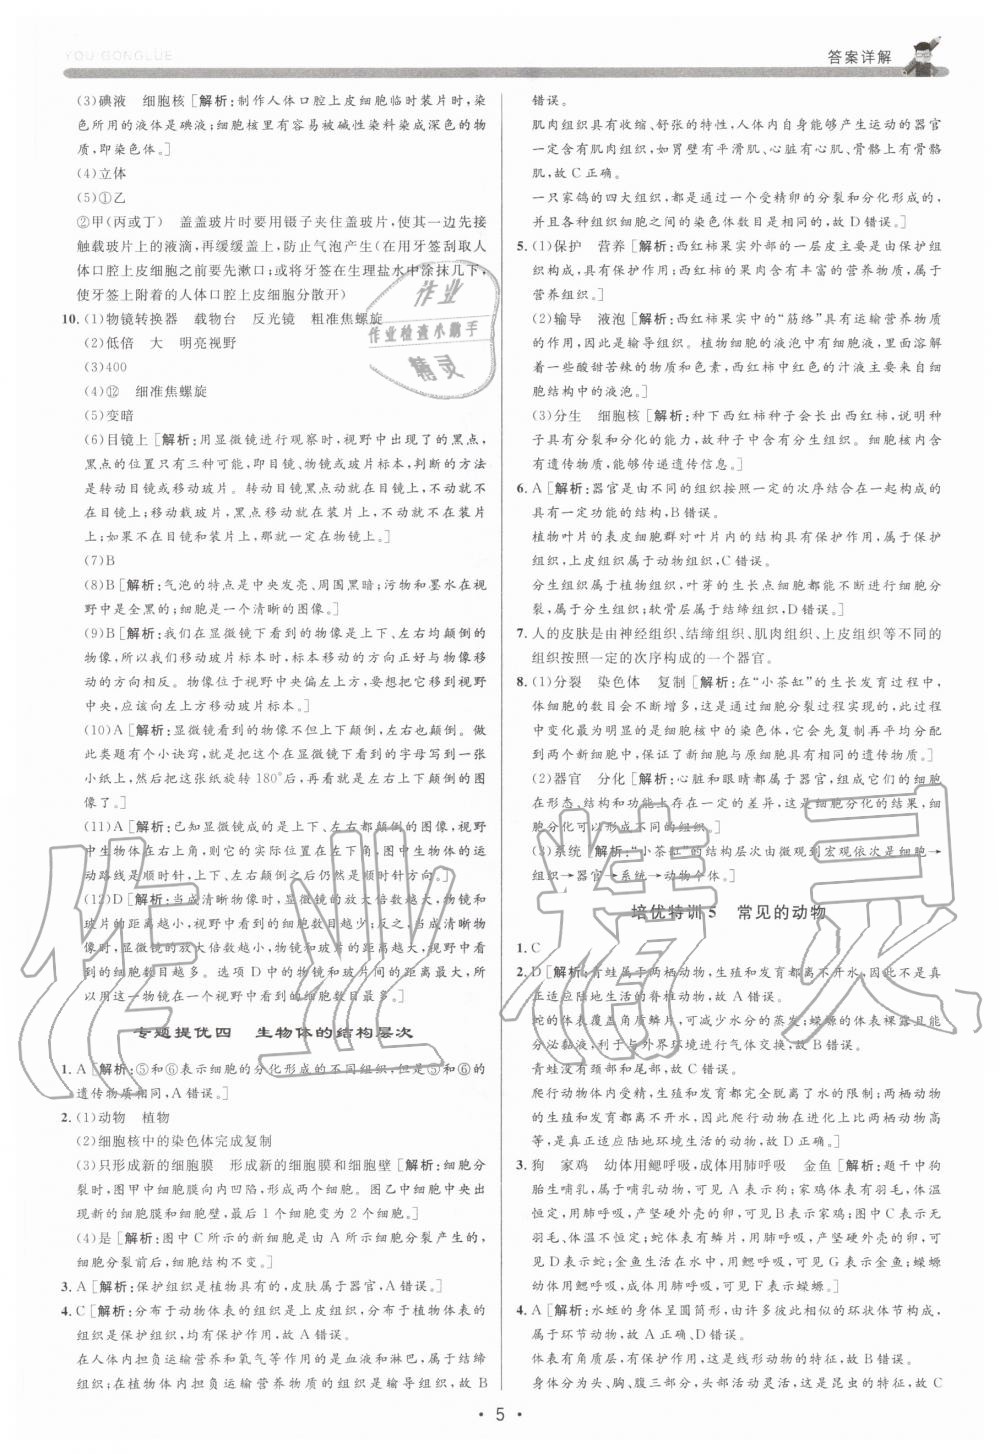 YOU GONGLUE
答案详解
(3)碘液　细胞核[解析:制作人体口腔上皮细胞临时装片时,染
色所用的液体是碘液;细胞核里有容易被碱性染料染成深色的物
质,即染色体。]
(4)立体
(5)①乙
②甲(丙或丁)　盖盖玻片时要用镊子夹住盖玻片,使其一边先接
触载玻片上的液滴,再缓缓盖上,防止气泡产生(在用牙签刮取人
体口腔上皮细胞之前要先漱口;或将牙签在生理盐水中涂抹几下,
使牙签上附着的人体口腔上皮细胞分散开)
10. (1)物镜转换器　载物台　反光镜　粗准焦螺旋
(2)低倍　大　明亮视野
(3)400
(4)⑫　细准焦螺旋
(5)变暗
(6)目镜上[解析:用显微镜进行观察时,视野中出现了的黑点,
黑点的位置只有三种可能,即目镜、物镜或玻片标本,判断的方法
是转动目镜或移动玻片。转动目镜黑点不动,就不在目镜,动就
在目镜上;移动载玻片,黑点移动就在装片上,不动就不在装片
上;如果不在目镜和装片上,那就一定在物镜上。]
(7)B
(8)B[解析:气泡的特点是中央发亮、周围黑暗;污物和墨水在视
野中是全黑的;细胞是一个清晰的图像。]
(9)B[解析:我们在显微镜下看到的物像是上下、左右均颠倒的
物像,所以我们移动玻片标本时,标本移动的方向正好与物像移
动的方向相反。物像位于视野中央偏左上方,要想移到视野
中央,应该向左上方移动玻片标本。]
(10)A[解析:显微镜看到的物像不但上下颠倒,左右也颠倒。做
此类题有个小诀窍,就是把在显微镜下看到的字母写到一张
小纸上,然后把这张纸旋转180°后,再看就是上下左右颠倒的图
像了。]
(11)A[解析:已知显微镜成的是上下、左右都颠倒的图像,视野
中生物体在右上角,则它的实际位置在左下角;生物体的运
动路线是顺时针,上下、左右颠倒之后仍然是顺时针方向。]
(12)D[解析:当成清晰的像时,显微镜的放大倍数越大,物镜
和玻片的距离越小,看到的细胞数越少;反之,当成清晰的像时,
显微镜的放大倍数越小,物镜和玻片的距离越大,视野中看
到的细胞数越多。选项D中的物镜和玻片间的距离最大,所
以用这一物镜在一个视野中看到的细胞数目最多。]
专题提优四　生物体的结构层次
1. A[解析:⑤和⑥表示细胞的分化形成的不同组织,但是⑤与⑥的
遗传物质相同,A错误。]
2. (1)动物　植物
(2)细胞核中的染色体完成复制
(3)只形成新的细胞膜　形成新的细胞膜和细胞壁[解析:细胞分
裂时,图甲中细胞膜向内凹陷,形成两个细胞。图乙中细胞中央出
现新的细胞膜和细胞壁,最后1个细胞变为2个细胞。
(4)是[解析:图中C所示的新细胞是由A所示细胞分裂产生的,
细胞分裂前后,细胞结构不变。]
3. A[解析:保护组织是植物具有的,皮肤属于器官,A错误。]
4. C[解析:分布于动物体表的组织是上皮组织,分布于植物体表的
组织是保护组织,均有保护作用,故A错误。
在人体内担负运输营养和氧气等作用的是血液和淋巴,属于结缔
组织;在植物体内担负运输营养物质作用的是输导组织,故B
错误。
肌肉组织具有收缩、舒张的特性,人体内自身能够产生运动的器官
一定含有肌肉组织,如胃壁有平滑肌、心脏有心肌、骨骼上有骨骼
肌,故C正确。
一只家鸽的四大组织,都是通过一个受精卵的分裂和分化形成的,
并且各种组织细胞之间的染色体数目是相同的,故D错误。]
5. (1)保护　营养[解析:西红柿果实外部的一层皮主要是由保护组
织构成,具有保护作用;西红柿的果肉含有丰富的营养物质,属于
营养组织。
(2)输导　液泡[解析:西红柿果实中的“筋络”具有运输营养物质
的作用,因此是输导组织。植物细胞的液泡中有细胞液,里面溶解
着一些酸甜苦辣的物质和色素,西红柿中红色的汁液主要来自细
胞结构中的液泡。]
(3)分生　细胞核[解析:种下西红柿种子会长出西红柿,说明种子
具有分裂和分化的能力,故种子中含有分生组织。细胞核内含
有遗传物质,能够传递遗传信息。]
6. A[解析:器官是由不同的组织按照一定的次序结合在一起构成的
具有一定功能的结构,B错误。
植物叶片的表皮细胞群对叶片内的结构具有保护作用,属于保护
组织,上皮组织属于动物组织,C错误。
分生组织属于植物组织,叶芽的生长点细胞都能不断进行细胞分
裂,属于分生组织;软骨层属于结缔组织,D错误。]
7. 人的皮肤是由神经组织、结缔组织、肌肉组织、上皮组织等不同的
组织按照一定的次序构成的一个器官。
8. (1)分裂　染色体　复制[解析:在“小茶缸”的生长发育过程中,
体细胞的数目会不断增多,这是通过细胞分裂过程实现的,此过程
中变化最为明显的是细胞核中的染色体,它会先复制再平均分配
到两个新细胞中,保证了新细胞与原细胞具有相同的遗传物质。
(2)器官　分化[解析:心脏和眼睛都属于器官,组成它们的细胞
在形态、结构和功能上存在一定的差异,这是细胞分化的结果,细
胞分化可以形成不同的组织。]
(3)系统[解析:“小茶缸”的结构层次由微观到宏观依次是细胞→
组织→器官→系统→动物个体。]
培优特训5　常见的动物
1. C
2. D[解析:青蛙属于两栖动物,生殖和发育离不开水,因此不是真
正适应陆地生活的脊椎动物,故A错误。
蛇的体表覆盖角质鳞片,可减少水分的蒸发;蝾螈的体表裸露且能
分泌黏液,利于与外界环境进行气体交换,故B错误。
青蛙没有颈部和尾部,故C错误。
爬行动物体内受精,生殖和发育完全脱离了水的限制;两栖动物
的生殖和发育都离不开水,因此爬行动物在进化上比两栖动物高
等,是真正适应陆地环境生活的动物,故D正确。]
3. 狗　家鸡　幼体用鳃呼吸,成体用肺呼吸　金鱼[解析:题干中狗
胎生哺乳,属于哺乳动物,可见A表示狗;家鸡体表有羽毛,体温
恒定,用肺呼吸,产坚硬外壳的卵,可见B表示家鸡;图中C表示无
羽毛、体温不恒定;蛇体表有鳞片,用肺呼吸,产坚硬外壳的卵,可
见D表示蛇;金鱼生活在水中,用鳃呼吸,可见G表示金鱼;蝾螈
幼体用鳃呼吸,成体用肺呼吸,可见F表示蝾螈。
4. A[解析:水蛭的身体呈圆筒形,由许多彼此相似的环状体节构成,
属于环节动物,故A正确、D错误。
体表有角质层,有口有肛门,这是线形动物的特征,故B错误。
身体分为头、胸、腹三部分,头部活动灵活,这是昆虫的特征,故C
作业
作业检查小助手
精灵
作业精灵
· 5 ·